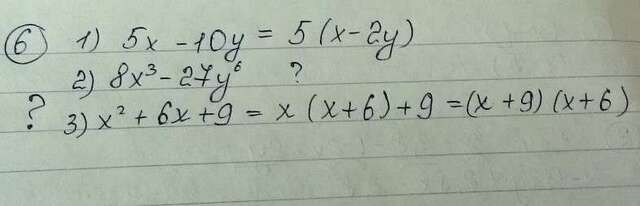 6 1) 5x - 10y = 5 (x - 2y)
2) 8x³ - 27y⁶ ?
? 3) x² + 6x + 9 = x (x + 6) + 9 = (x + 9) (x + 6)